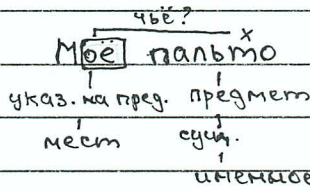 чьё?
х
Моё пальто
указ. на пред. предмет
мест сущ.
именное